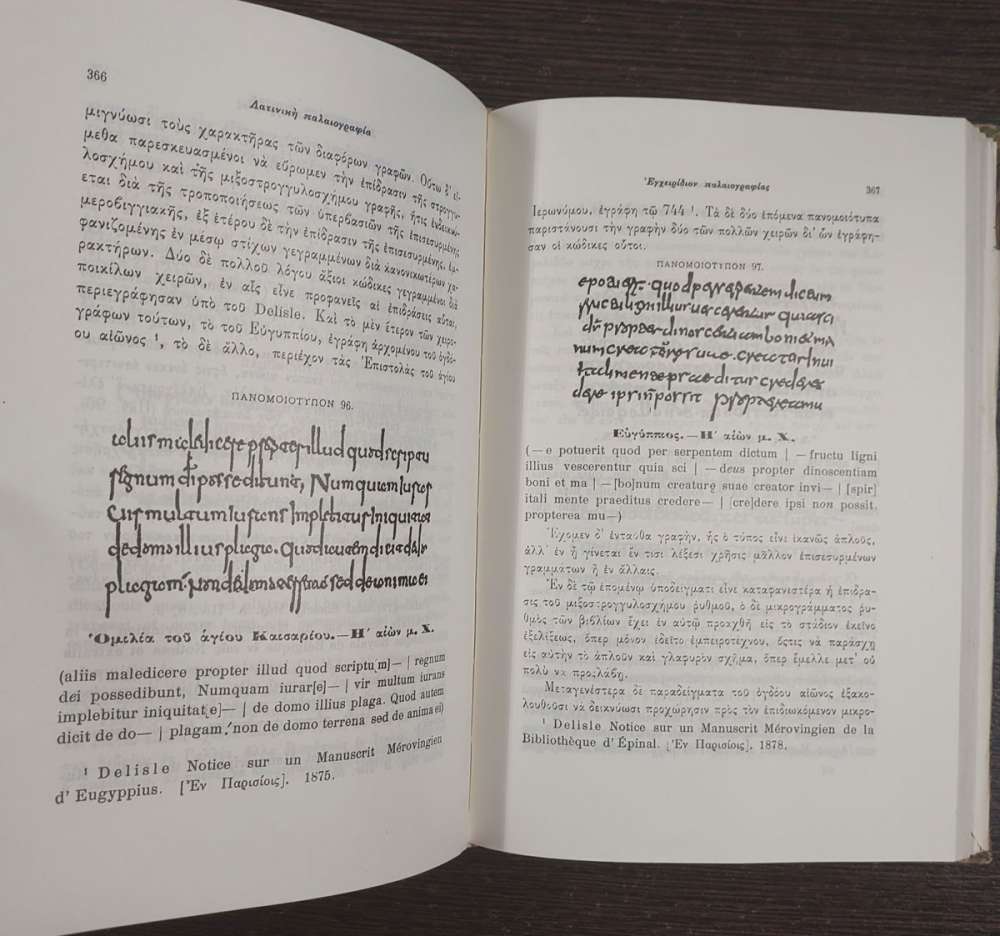 366
Λατινικὴ παλαιογραφία
μιγνύωσι τοὺς χαρακτῆρας τῶν διαφόρων γραφῶν. Οὕτω δ' εἴ-
μεθα παρεσκευασμένοι νὰ εὕρωμεν τὴν ἐπίδρασιν τῆς στρογγυ-
λοσχήμου καὶ τῆς μιξοστρογγυλοσχήμου γραφῆς, ἥτις ἐνδεικνύ-
εται διὰ τῆς τροποποιήσεως τῶν ὑπερβασιῶν τῆς ἐπισεσυρμένης
μεροβιγγιακῆς, ἐξ ἑτέρου δὲ τὴν ἐπίδρασιν τῆς ἐπισεσυρμένης, ἐμ-
φανιζομένης ἐν μέσῳ στίχων γεγραμμένων διὰ κανονικωτέρων χα-
ρακτήρων. Δύο δὲ πολλοῦ λόγου ἄξιοι κώδικες γεγραμμένοι διὰ
ποικίλων χειρῶν, ἐν αἷς εἶνε προφανεῖς αἱ ἐπιδράσεις αὗται,
περιεγράφησαν ὑπὸ τοῦ Delisle. Καὶ τὸ μὲν ἕτερον τῶν χειρο-
γράφων τούτων, τὸ τοῦ Εὐγυππίου, ἐγράφη ἀρχομένου τοῦ ὀγδό-
ου αἰῶνος ¹, τὸ δὲ ἄλλο, περιέχον τὰς Ἐπιστολὰς τοῦ ἁγίου
ΠΑΝΟΜΟΙΟΤΥΠΟΝ 96.
aliis maledicere propter illud quod scriptu
regnum dei possedibunt, Numquam iurar
vir multum iurans implebitur iniquitate
de domo illius plaga. Quod autem dicit de do
plagam. non de domo terrena sed de anima ei
Ὁμελέα τοῦ ἁγίου Καισαρίου.—Η' αἰὼν μ. Χ.
(aliis maledicere propter illud quod scriptu[m]— | regnum
dei possedibunt, Numquam iurar[e]— | vir multum iurans
implebitur iniquitat[e]— | de domo illius plaga. Quod autem
dicit de do— | plagam.' non de domo terrena sed de anima ei)
¹ Delisle Notice sur un Manuscrit Mérovingien
d' Eugyppius. [Ἐν Παρισίοις]. 1875.
Ἐγχειρίδιον παλαιογραφίας
367
Ἱερωνύμου, ἐγράφη τῷ 744 ¹. Τὰ δὲ δύο ἑπόμενα πανομοιότυπα
παριστάνουσι τὴν γραφὴν δύο τῶν πολλῶν χειρῶν δι' ὧν ἐγράφη-
σαν οἱ κώδικες οὗτοι.
ΠΑΝΟΜΟΙΟΤΥΠΟΝ 97.
Εὐγύππιος.—Η' αἰὼν μ. Χ.
(—e potuerit quod per serpentem dictum | —fructu ligni
illius vescerentur quia sci | —deus propter dinoscentiam
boni et ma | —[bo]num creaturę suae creator invi— | [spir]
itali mente praeditus credere— | [cre]dere ipsi non possit.
propterea mu—)
Ἔχομεν δ' ἐνταῦθα γραφήν, ἧς ὁ τύπος εἶνι ἱκανῶς ἁπλοῦς,
ἀλλ' ἐν ᾗ γίνεται ἔν τισι λέξεσι χρῆσις μᾶλλον ἐπισεσυρμένων
γραμμάτων ἢ ἐν ἄλλαις.
Ἐν δὲ τῷ ἑπομένῳ ὑποδείγματι εἶνε καταφανιστέρα ἡ ἐπίδρα-
σις τοῦ μιξοστρογγυλοσχήμου ῥυθμοῦ, ὁ δὲ μικρογράμματος ῥυ-
θμὸς τῶν βιβλίων ἔχει ἐν αὐτῷ προαχθῆ εἰς τὸ στάδιον ἐκεῖνο
ἐξελίξεως, ὅπερ μόνον ἐδεῖτο ἐμπειροτέχνου, ὅςτις νὰ παράσχῃ
εἰς αὐτὴν τὸ ἁπλοῦν καὶ γλαφυρὸν σχῆμα, ὅπερ ἔμελλε μετ' οὐ
πολὺ να προςλάβῃ.
Μεταγενίστερα δὲ παραδείγματα τοῦ ὀγδόου αἰῶνος ἐξακο-
λουθοῦσι νὰ δεικνύωσι προχώρησιν πρὸς τὸν ἐπιδιωκόμενον μικρο-
¹ Delisle Notice sur un Manuscrit Mérovingien de la
Bibliothèque d' Épinal. [Ἐν Παρισίοις]. 1878.